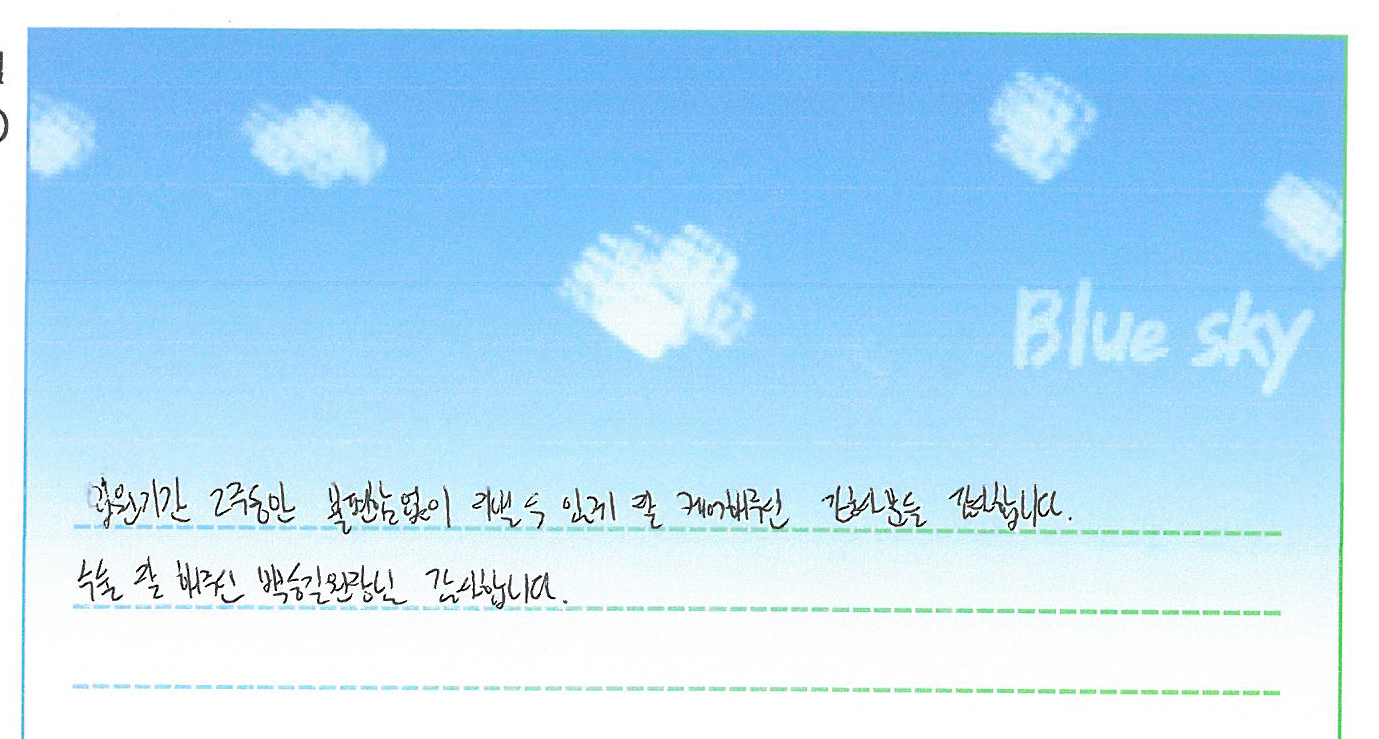 Blue sky
입원기간 2주동안 불편함 없이 지낼 수 있게 잘 케어해주신 간호사분들 감사합니다.
수술 잘 해주신 백승길원장님 감사합니다.